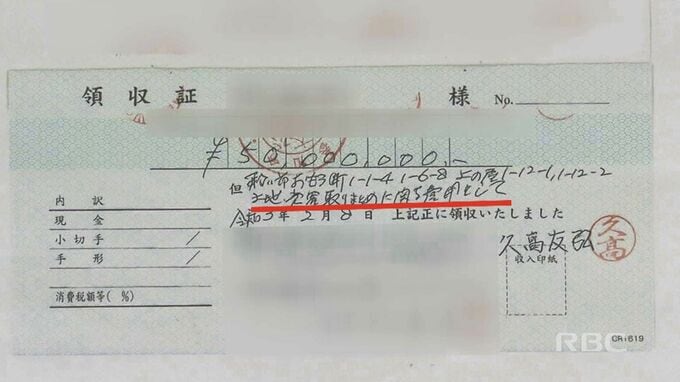 領収証 様 No.
¥50,000,000.-
但 那覇市お古町1-1-4 1-6-8 上の屋1-12-1,1-12-2
土地売買取りまとめに関する費用として
令和3年2月8日 上記正に領収いたしました
内訳
現金
小切手 /
手形 /
消費税額等(%)
久高友弘
久高
収入印紙
RBC
CR:619